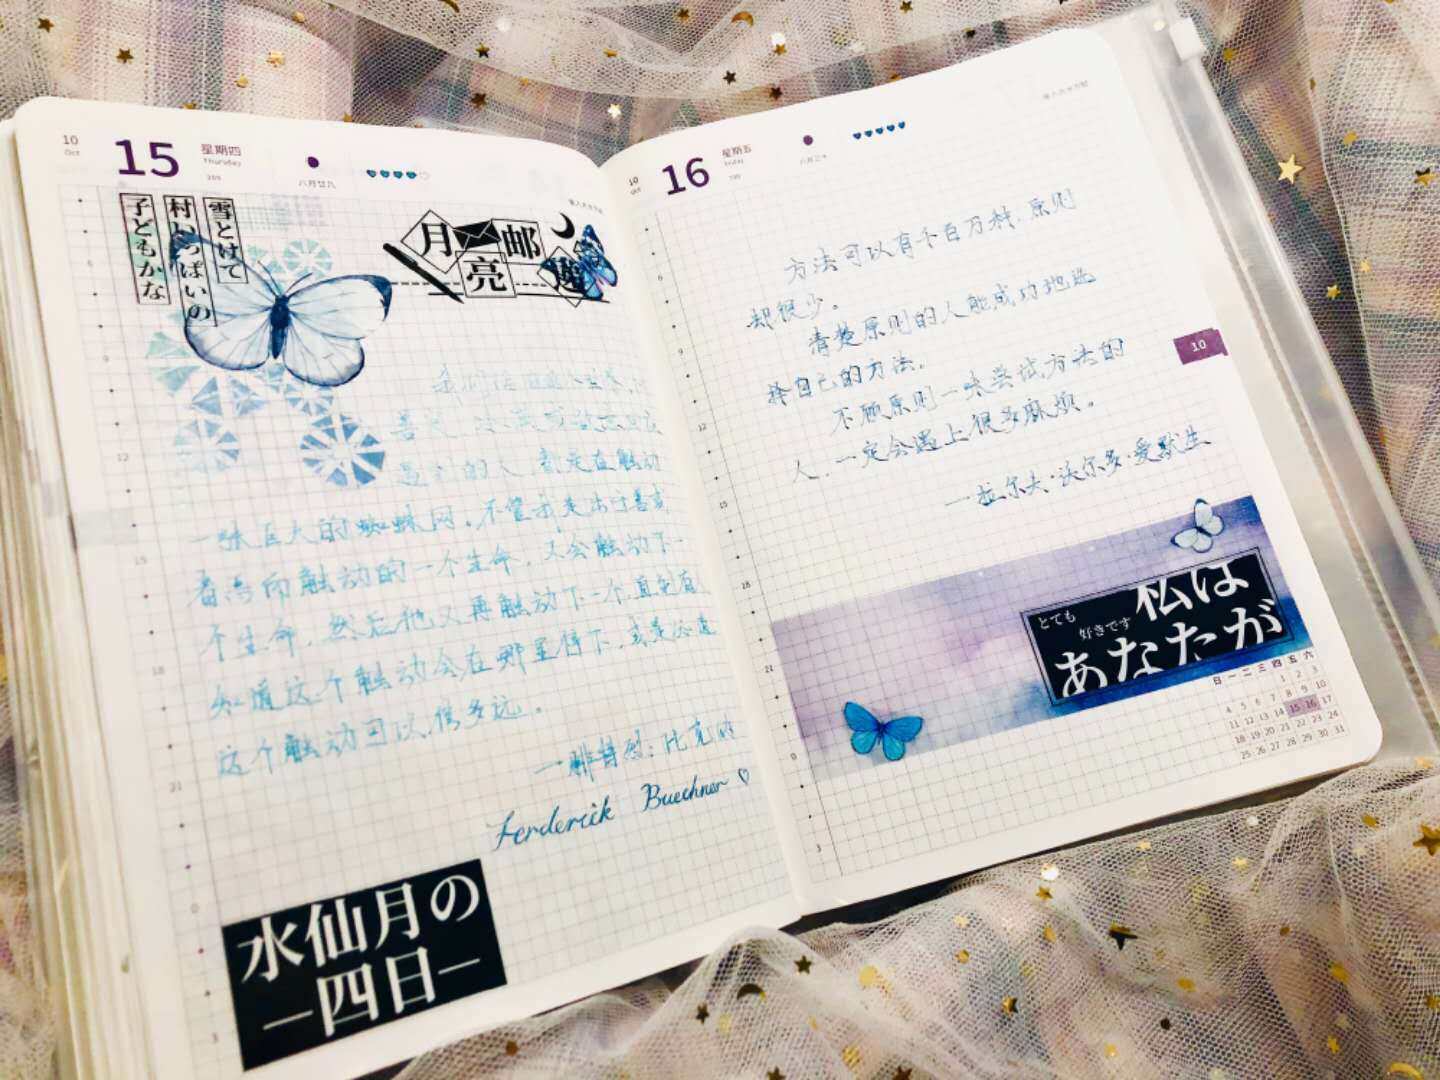 10
Oct
15
星期四
Thursday
289
八月廿九
雪とけて
村いっぱいの
子どもかな
月亮邮递
6
9
12
15
18
21
0
3
遇到的人,都是在触动
一张巨大的蜘蛛网。不管我是出于善或
看与而触动的一个生命,又会触动下一
个生命,然后他又再触动下一个,直到有
知道这个触动会在哪里停下,或是
这个触动可以很多远。
Ferderick Buechner
水仙月の
—四日—
10
Oct
16
星期五
friday
290
八月三十
6
9
12
15
18
21
0
3
方法可以有千百万种,原则
却很少。
清楚原则的人能成功地选
择自己的方法。
不顾原则一味尝试方法的
人,一定会遇上很多麻烦。
—拉尔夫·沃尔多·爱默生
10
とても
好きです
私は
あなたが
日 一 二 三 四 五 六
1 2 3
4 5 6 7 8 9 10
11 12 13 14 15 16 17
18 19 20 21 22 23 24
25 26 27 28 29 30 31